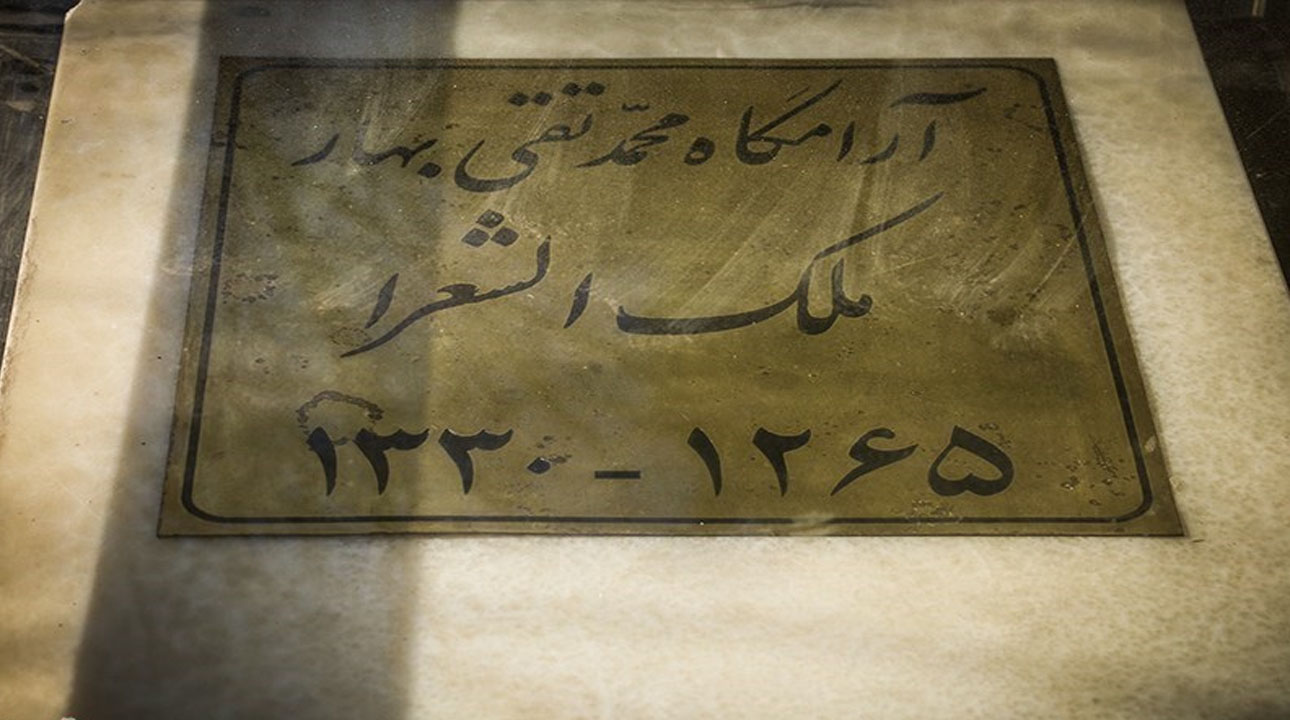 آرامگاه محمّدتقی بهار
ملک الشعرا
۱۲۶۵ - ۱۳۳۰